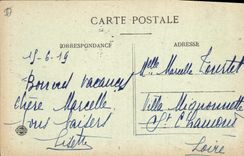 CARTE POSTALE
CORRESPONDANCE
ADRESSE
15-6-19
Bonnes vacances
chère Marcelle
Bons baisers
Lisette
Mlle Marcelle Tourtet
Villa Mignonnette
St Chamond
Loire